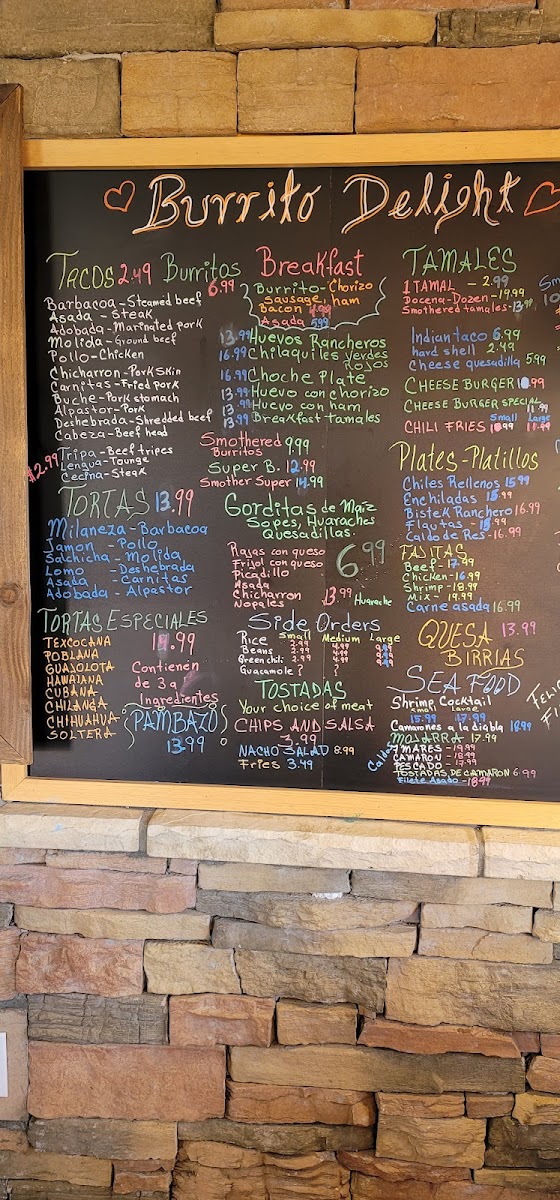 Burrito Delight
Tacos 2.49 Burritos 6.99
Barbacoa - Steamed beef
Asada - Steak
Adobada - Marinated pork
Molida - Ground beef
Pollo - Chicken
Chicharron - Pork Skin
Carnitas - Fried Pork
Buche - Pork stomach
Alpastor - Pork
Deshebrada - Shredded beef
Cabeza - Beef head
$2.99
Tripa - Beef tripes
Lengua - Tounge
Cecina - Steak
TORTAS 13.99
Milaneza - Barbacoa
Jamon - Pollo
Salchicha - Molida
Lomo - Deshebrada
Asada - Carnitas
Adobada - Alpastor
TORTAS ESPECIALES
TEXCOCANA
POBLANA
GUAJOLOTA
HAWAIANA
CUBANA
CHILANGA
CHIHUAHUA
SOLTERA
Contienen
de 3 a
Ingredientes
PAMBAZO
13.99
Breakfast
Burrito - Chorizo
Sausage, ham
Bacon
Asada 5.99
13.99 Huevos Rancheros
16.99 Chilaquiles verdes
Rojos
16.99 Choche Plate
13.99 Huevo con chorizo
13.99 Huevo con ham
13.99 Breakfast tamales
Smothered 9.99
Burritos
Super B. 12.99
Smother Super 14.99
Gorditas de Maiz
Sopes, Huaraches
Quesadillas.
6.99
Rajas con queso
Frijol con queso
Picadillo
Asada
Chicharron
Nopales
13.99 Huarache
Side Orders
Small Medium Large
Rice 2.99 4.99
Beans 2.99 4.99
Green chili 2.99 4.99
Guacamole ? ?
TOSTADAS
Your choice of meat
CHIPS AND SALSA
3.99
NACHO SALAD 8.99
Fries 3.49
TAMALES
1 TAMAL - 2.99
Docena - Dozen - 19.99
Smothered tamales - 13.99
Indian taco 6.99
hard shell 2.49
Cheese quesadilla 5.99
CHEESE BURGER
CHEESE BURGER SPECIAL 11.99
Small Large
CHILI FRIES
Plates - Platillos
Chiles Rellenos 15.99
Enchiladas
Bistek Ranchero 16.99
Flautas
Caldo de Res - 16.99
FAJITAS
Beef - 17.99
Chicken - 16.99
Shrimp - 18.99
Mix - 19.99
Carne asada 16.99
QUESA 13.99
BIRRIAS
SEA FOOD
Shrimp Cocktail
Small Large
15.99 17.99
Camarones a la diabla 18.99
MOJARRA 17.99
Caldos
7 MARES - 19.99
CAMARON - 18.99
PESCADO - 17.99
TOSTADAS DE CAMARON 6.99
Filete Asado - 18.99